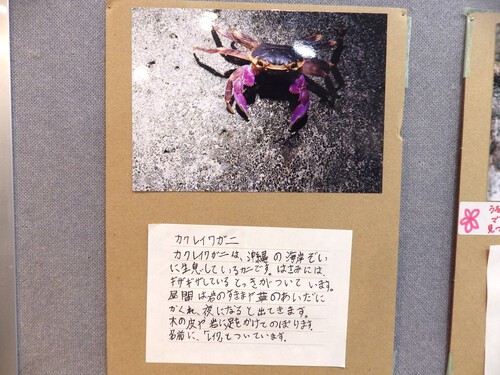 カクレイワガニ
カクレイワガニは、沖縄の海岸ぞい
に生息しているカニです。はさみには、
ギザギザしているとっきがついています。
昼間は岩のすきまや葉のあいだに
かくれ、夜になると出てきます。
木の皮や岩に足をかけてのぼります。
名前に、「イワ」もついています。